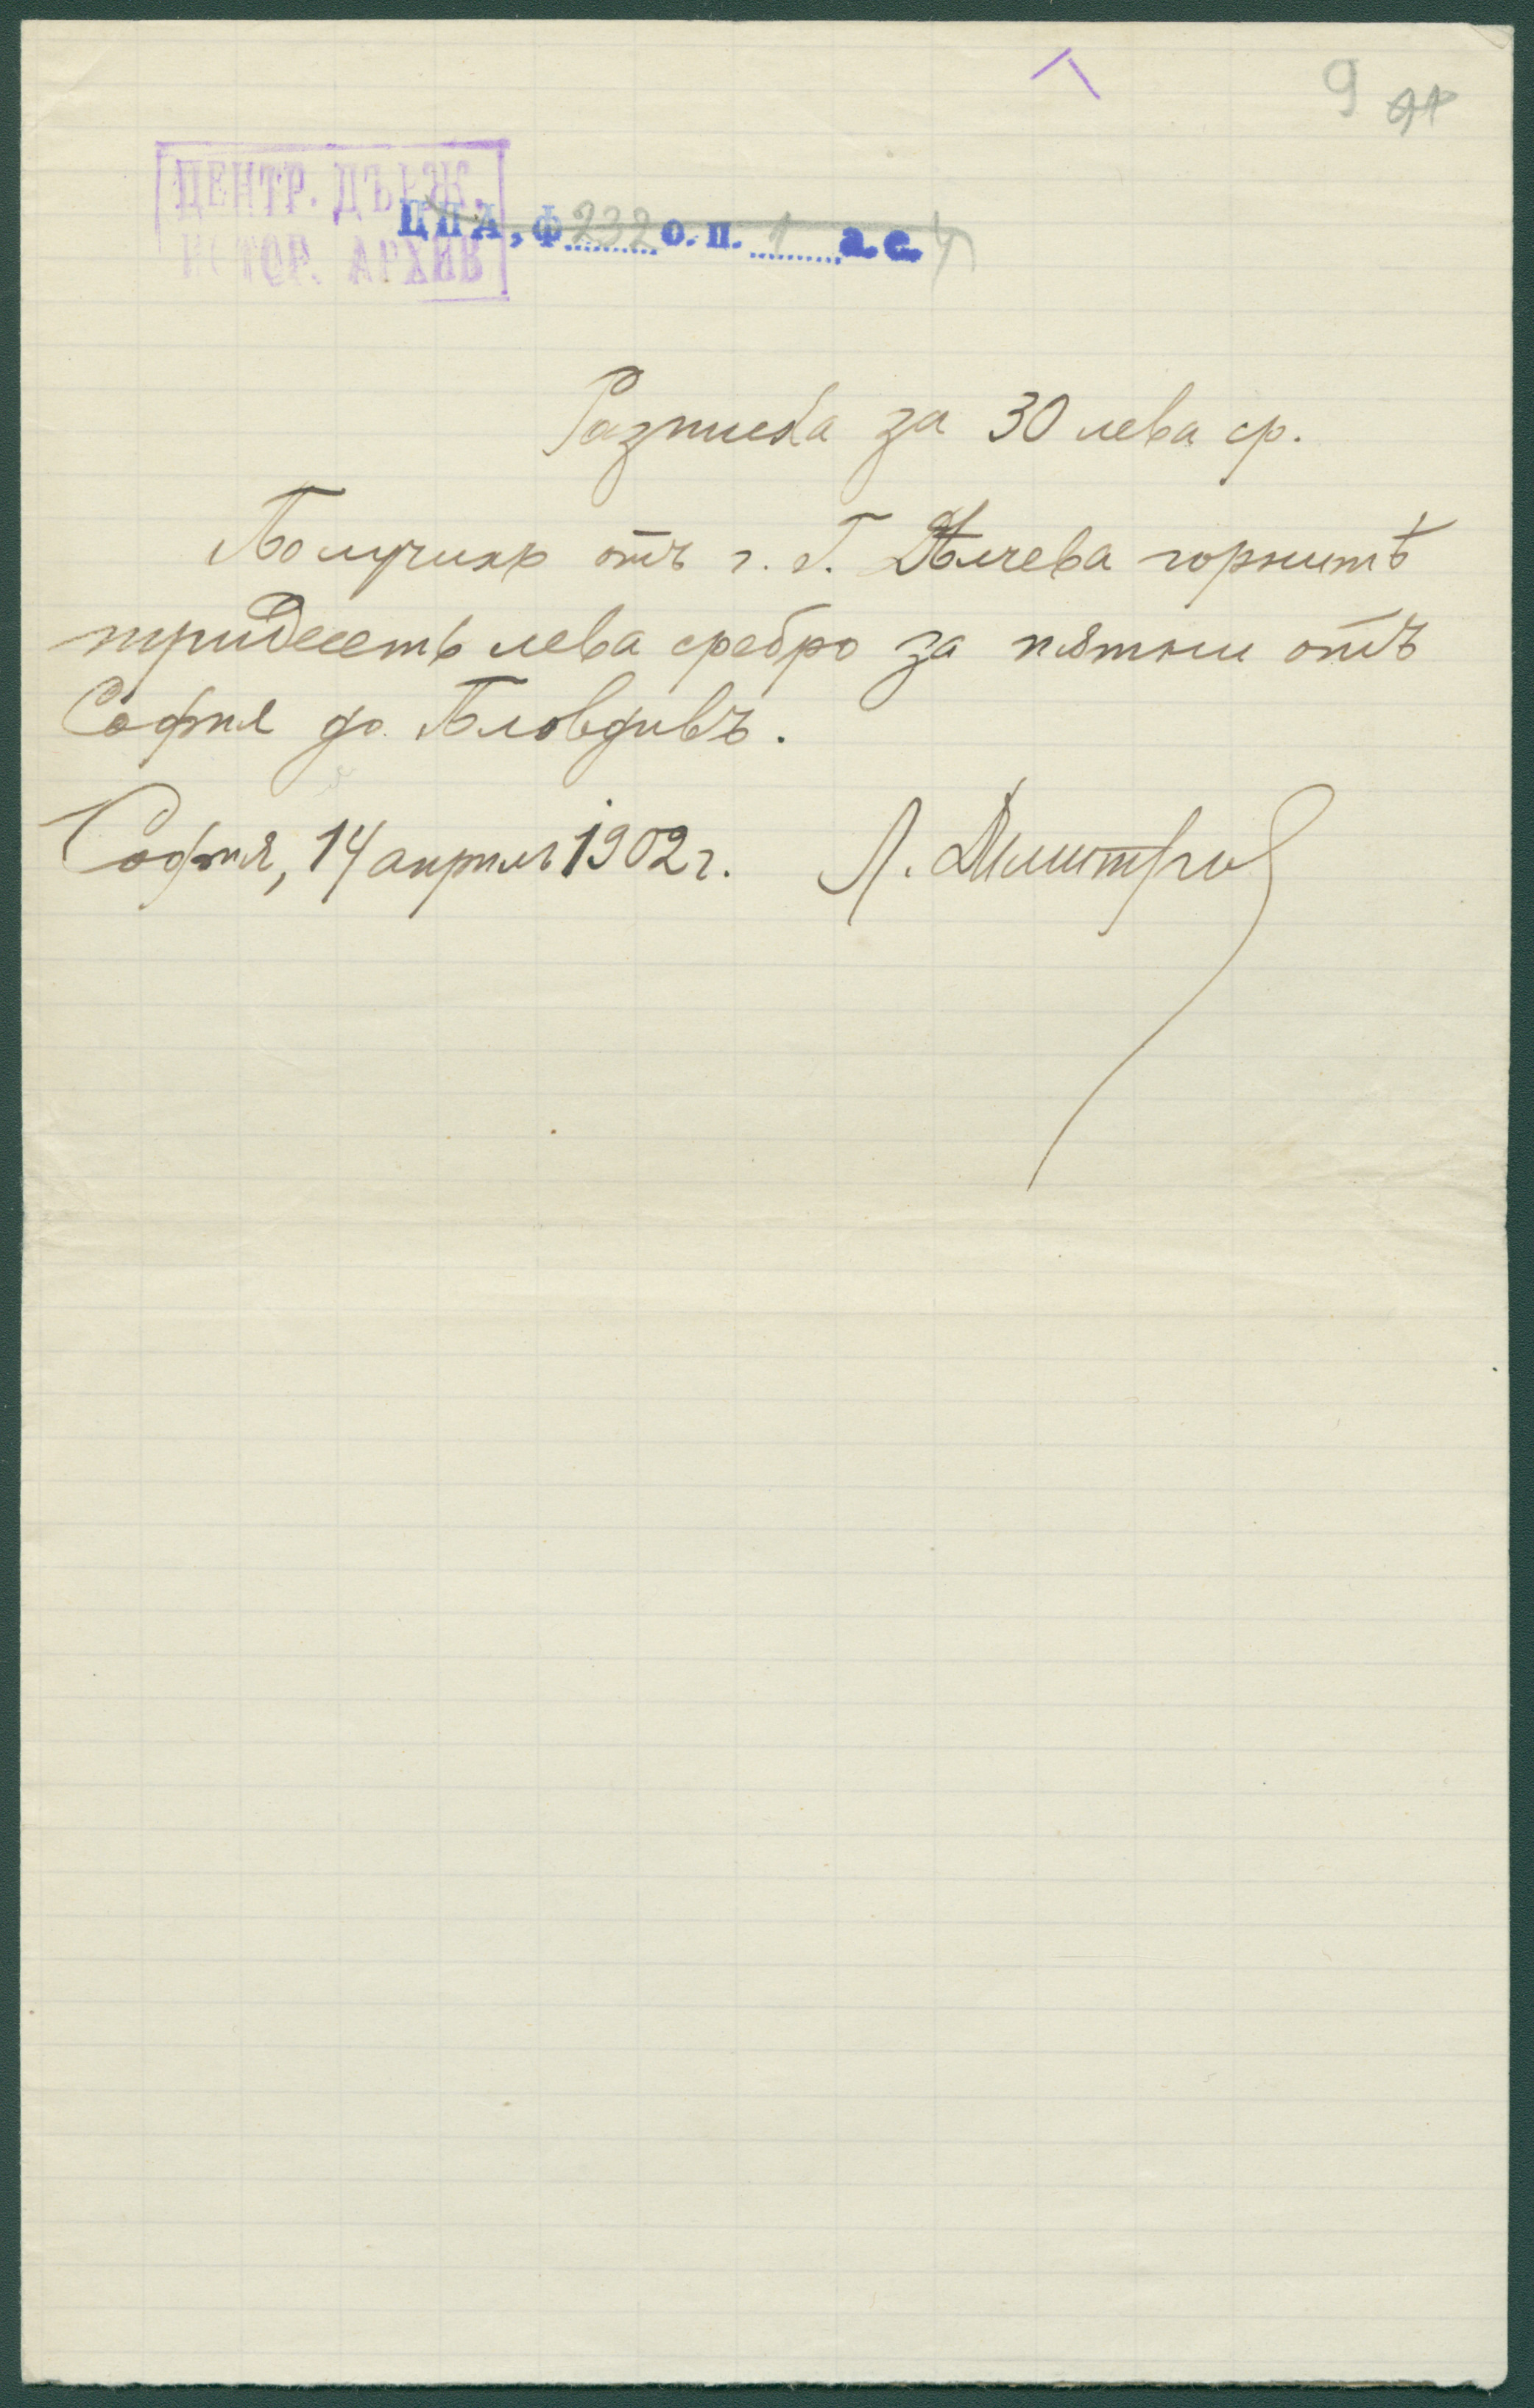 9
ЦЕНТР. ДЪРЖ.
ИСТОР. АРХИВ
ЦПА, ф 232 о. п. 1 а. е. 4
Разписка за 30 лева ср.
Получихъ отъ г. Г. Дѣлчева горнитѣ
тридесеть лева сребро за пѫтни отъ
София до Пловдивъ.
София, 14 априлъ 1902 г. Л. Димитров